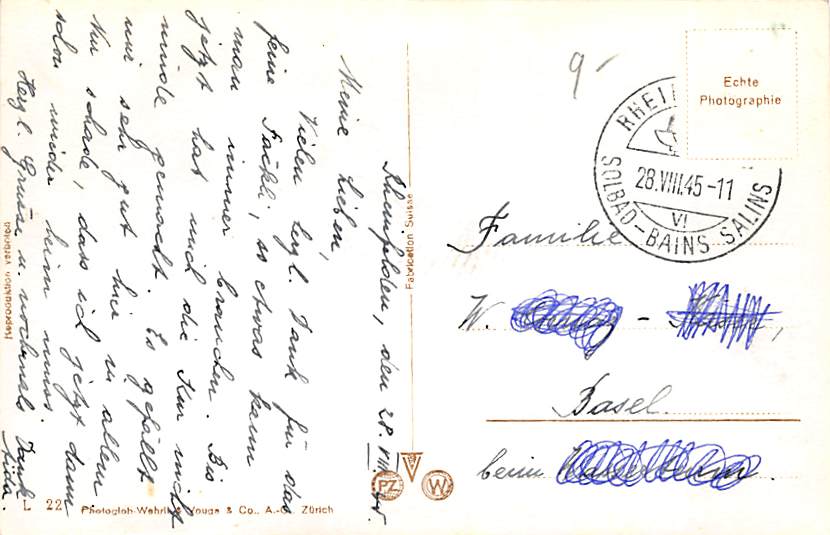 Rheinfelden, den 28. VIII. 45.
Meine Lieben,
Vielen herzl. Dank für das
feine Päckli, so etwas kann
man immer brauchen. Bis
jetzt hat mich die Kur nicht
müde gemacht. Es gefällt
mir sehr gut hier in allem
Nur schade, dass ich jetzt dann
schon wieder heim muss.
Herzl. Grüsse u. nochmals Dank
9-
Echte
Photographie
RHEI
28.VIII.45-11
VI
SOLBAD-BAINS SALINS
Familie
W. -
Basel.
beim
Fabrication Suisse
Reproduktion verboten
L 22
Photoglob-Wehrli & Vouga & Co., A.-G. Zürich
PZ
W